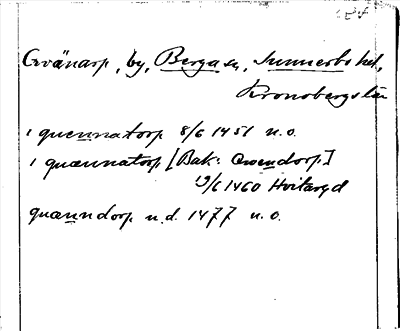 Qvänarp, by, Berga sn, Sunnerbo hd,
Kronobergs län
i quennatorp 8/6 1451 n.o.
i quænnatorp [Bak: Qwendorp]
19/6 1460 Hvitaryd
quænndorp u.d. 1477 n.o.